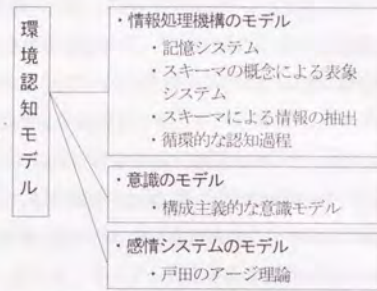 環境認知モデル
・情報処理機構のモデル
・記憶システム
・スキーマの概念による表象
システム
・スキーマによる情報の抽出
・循環的な認知過程
・意識のモデル
・構成主義的な意識モデル
・感情システムのモデル
・戸田のアージ理論